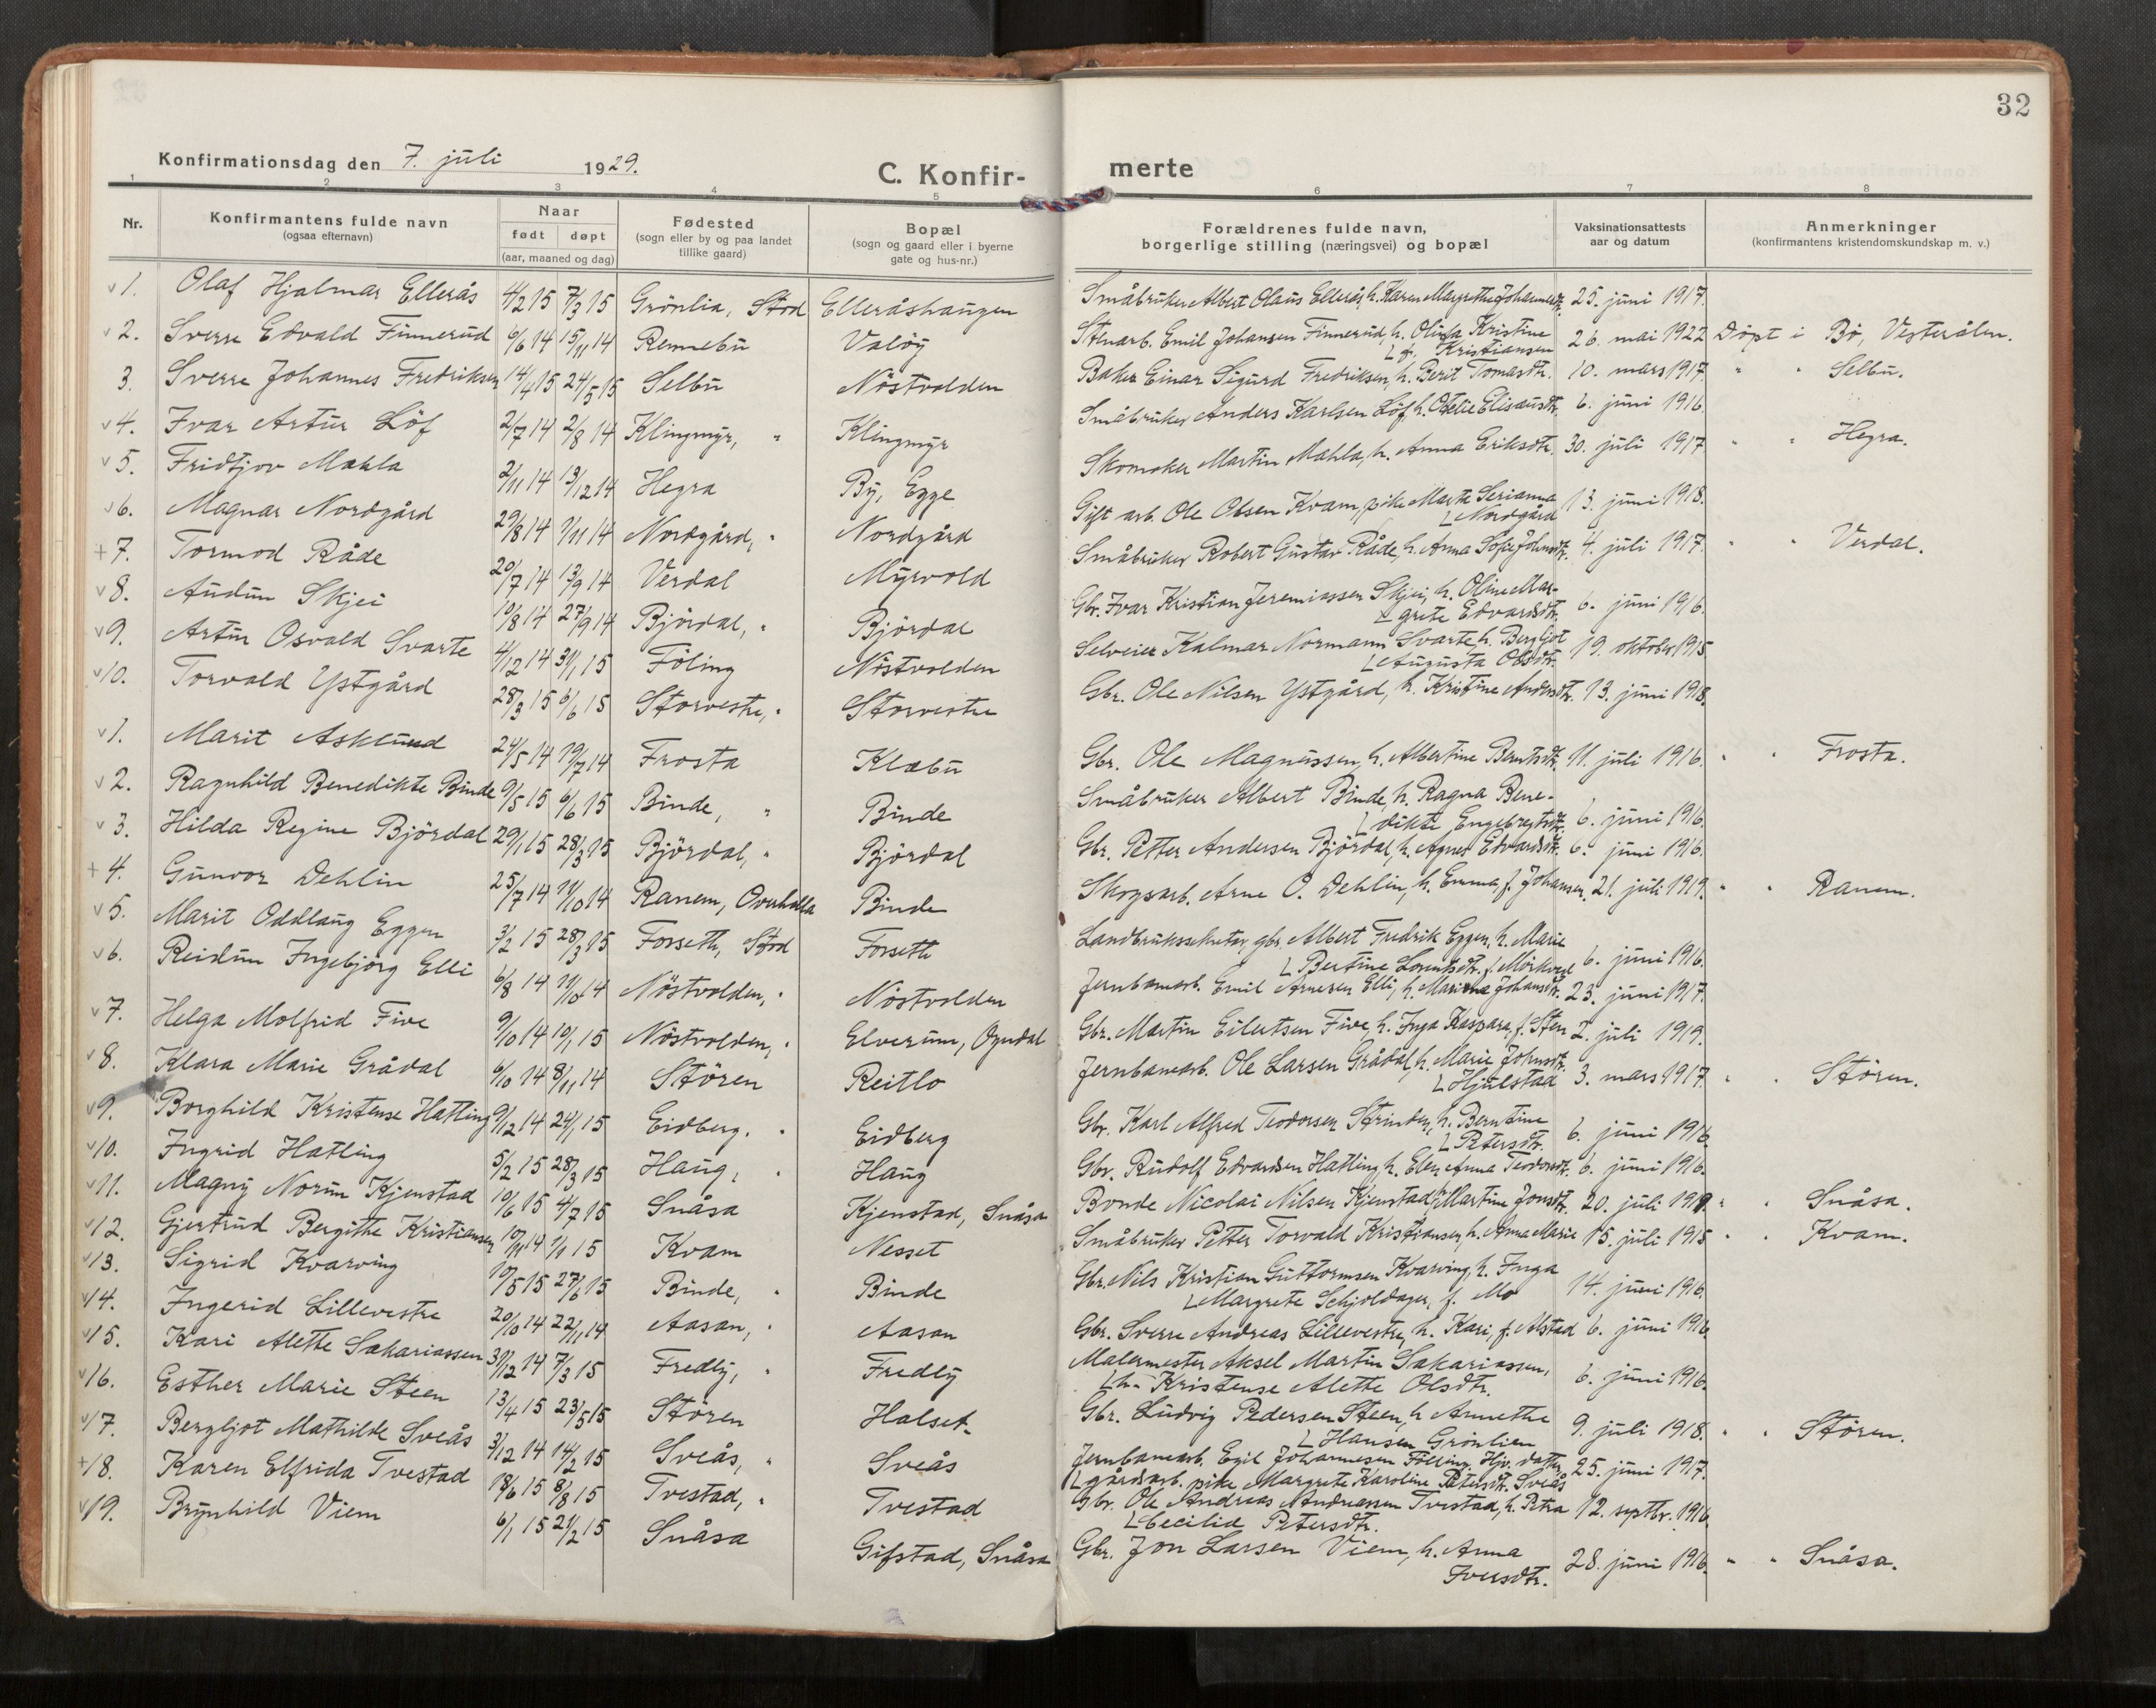 32
Konfirmationsdag den 7. juli 1929. C. Konfir- merte
1 2 3 4 5 6 7 8
Nr. Konfirmantens fulde navn (ogsaa efternavn) Naar født døpt (aar, maaned og dag) Fødested (sogn eller by og paa landet tillike gaard) Bopæl (sogn og gaard eller i byerne gate og hus-nr.) Forældrenes fulde navn, borgerlige stilling (næringsvei) og bopæl Vaksinationsattests aar og datum Anmerkninger (konfirmantens kristendomskundskap m. v.)
v 1. Olaf Hjalmar Ellerås 4/2 15 7/3 15 Grönlia, Stod Elleråshaugen Småbruker Albert Olaus Ellerås, h. Karen Margrethe Johannesdtr. 25. juni 1917.
v 2. Sverre Edvald Finnerud 6/6 14 15/11 14 Rennebu Valöy Stenarb. Emil Johansen Finnerud, h. Kristine f. Kristiansen 26. mai 1922 Döpt i Bö, Vesterålen.
3. Sverre Johannes Fredriksen 14/4 15 24/5 15 Selbu Nöstvolden Baker Einar Sigurd Fredriksen, h. Berit Tomasdtr. 10. mars 1917. " " Selbu.
v 4. Ivar Artur Löf 2/7 14 2/8 14 Klingmyr, " Klingmyr Småbruker Anders Karlsen Löf, h. Otelie Elisæusdtr. 6. juni 1916.
v 5. Fridtjov Mahla 2/11 14 13/12 14 Hegra By, Egge Skomaker Martin Mahla, h. Anna Eriksdtr. 30. juli 1917 " " Hegra.
v 6. Magnar Nordgård 29/8 14 1/11 14 Nordgård, " Nordgård Gift arb. Ole Olsen Kvam, pike Marta Serianna Nordgård 13. juni 1918.
+ 7. Tormod Råde 20/7 14 13/9 14 Verdal Myrvold Småbruker Robert Gustav Råde, h. Anna Sofie Johnsdtr. 4. juli 1917. " " Verdal.
v 8. Audun Skjei 10/8 14 27/9 14 Björdal, " Björdal Gbr. Ivar Kristian Jeremiassen Skjei, h. Oline Margrete Edvardsdtr. 6. juni 1916.
v 9. Artur Osvald Svarte 4/12 14 31/1 15 Föling Nöstvolden Selveier Kalmar Normann Svarte, h. Bergljot Augusta Olsdtr. 19. oktober 1915
v 10. Torvald Ystgård 28/3 15 6/6 15 Storvestre, " Storvestre Gbr. Ole Nilsen Ystgård, h. Kristine Andersdtr. 13. juni 1918.
v 1. Marit Asklund 24/5 14 19/7 14 Frosta Klæbu Gbr. Ole Magnussen, h. Albertine Berntsdtr. 11. juli 1916. " " Frosta.
v 2. Ragnhild Benedikte Binde 9/5 15 6/6 15 Binde, " Binde Småbruker Albert Binde, h. Ragna Benedikte Engebrigtsdtr. 6. juni 1916.
v 3. Hilda Regine Björdal 29/1 15 28/3 15 Björdal, " Björdal Gbr. Petter Andersen Björdal, h. Agnes Edvardsdtr. 6. juni 1916.
+ 4. Gunvor Dehlin 25/7 14 11/10 14 Ranem, Overhalla Binde Skogsarb. Arne O. Dehlin, h. Emma, f. Johansen, 21. juli 1919. " " Ranem.
v 5. Marit Oddlaug Eggen 3/2 15 28/3 15 Forseth, Stod Forseth Landbrukssekretær, gbr. Albert Fredrik Eggen, h. Marie Bertine Lorentsdtr. f. Mörkved 6. juni 1916.
v 6. Reidun Ingebjörg Elli 6/8 14 11/10 14 Nöstvolden, " Nöstvolden Jernbanearb. Emil Arnesen Elli, h. Marina Johansdtr. 23. juni 1917.
v 7. Helga Molfrid Five 9/10 14 10/1 15 Nöstvolden, " Elverum, Ogndal Gbr. Martin Eilertsen Five, h. Inga Kaspara, f. Sten 2. juli 1919.
v 8. Klara Marie Grådal 6/10 14 8/11 14 Stören Reitlo Jernbanearb. Ole Larsen Grådal, h. Marie Johnsdtr. Hjulstad 3. mars 1917. " " Stören.
v 9. Borghild Kristense Hatling 9/12 14 24/1 15 Eidberg. " Eidberg Gbr. Karl Alfred Teodorsen Strinden, h. Berntine Petersdtr. 6. juni 1916.
v 10. Ingrid Hatling 5/2 15 28/3 15 Haug, " Haug Gbr. Rudolf Edvardsen Hatling, h. Elen Anna Teodorsdtr. 6. juni 1916.
v 11. Magny Norun Kjenstad 10/6 15 4/7 15 Snåsa Kjenstad, Snåsa Bonde Nicolai Nilsen Kjenstad, h. Martine Jonsdtr. 20. juli 1919. " " Snåsa.
v 12. Gjertrud Bergithe Kristiansen 10/11 14 1/1 15 Kvam Nesset Småbruker Petter Torvald Kristiansen, h. Anna Marie 15. juli 1915 " " Kvam.
v 13. Sigrid Kvarving 10/5 15 27/6 15 Binde, " Binde Gbr. Nils Kristian Guttormsen Kvarving, h. Inga Margrete Schjoldager, f. Mo 14. juni 1916.
v 14. Ingerid Lillevestre 20/10 14 22/11 14 Aasan, " Aasan Gbr. Sverre Andreas Lillevestre, h. Kari, f. Alstad 6. juni 1916.
v 15. Kari Alette Sakariassen 31/12 14 7/3 15 Fredly, " Fredly Malermester Aksel Martin Sakariassen, h. Kristense Alette Olsdtr. 6. juni 1916.
v 16. Esther Marie Steen 13/4 15 23/5 15 Stören Halset. Gbr. Ludvig Pedersen Steen, h. Annethe Hansen Grönlien 9. juli 1918. " " Stören.
v 17. Bergljot Mathilde Sveås 3/12 14 14/2 15 Sveås, " Sveås Jernbanearb. Egil Johannesen Fölling. Hjv. datter, gårdsarb. pike Margrete Karoline Petersdtr. Sveås 25. juni 1917.
+ 18. Karen Elfrida Tvestad 18/6 15 8/8 15 Tvestad, " Tvestad Gbr. Ole Andreas Andreassen Tvestad, h. Petra Cecilie Petersdtr. 12. septbr. 1916.
v 19. Brynhild Viem 6/1 15 21/2 15 Snåsa Gifstad, Snåsa Gbr. Jon Larsen Viem, h. Anna Iversdtr. 28. juni 1916. " " Snåsa.